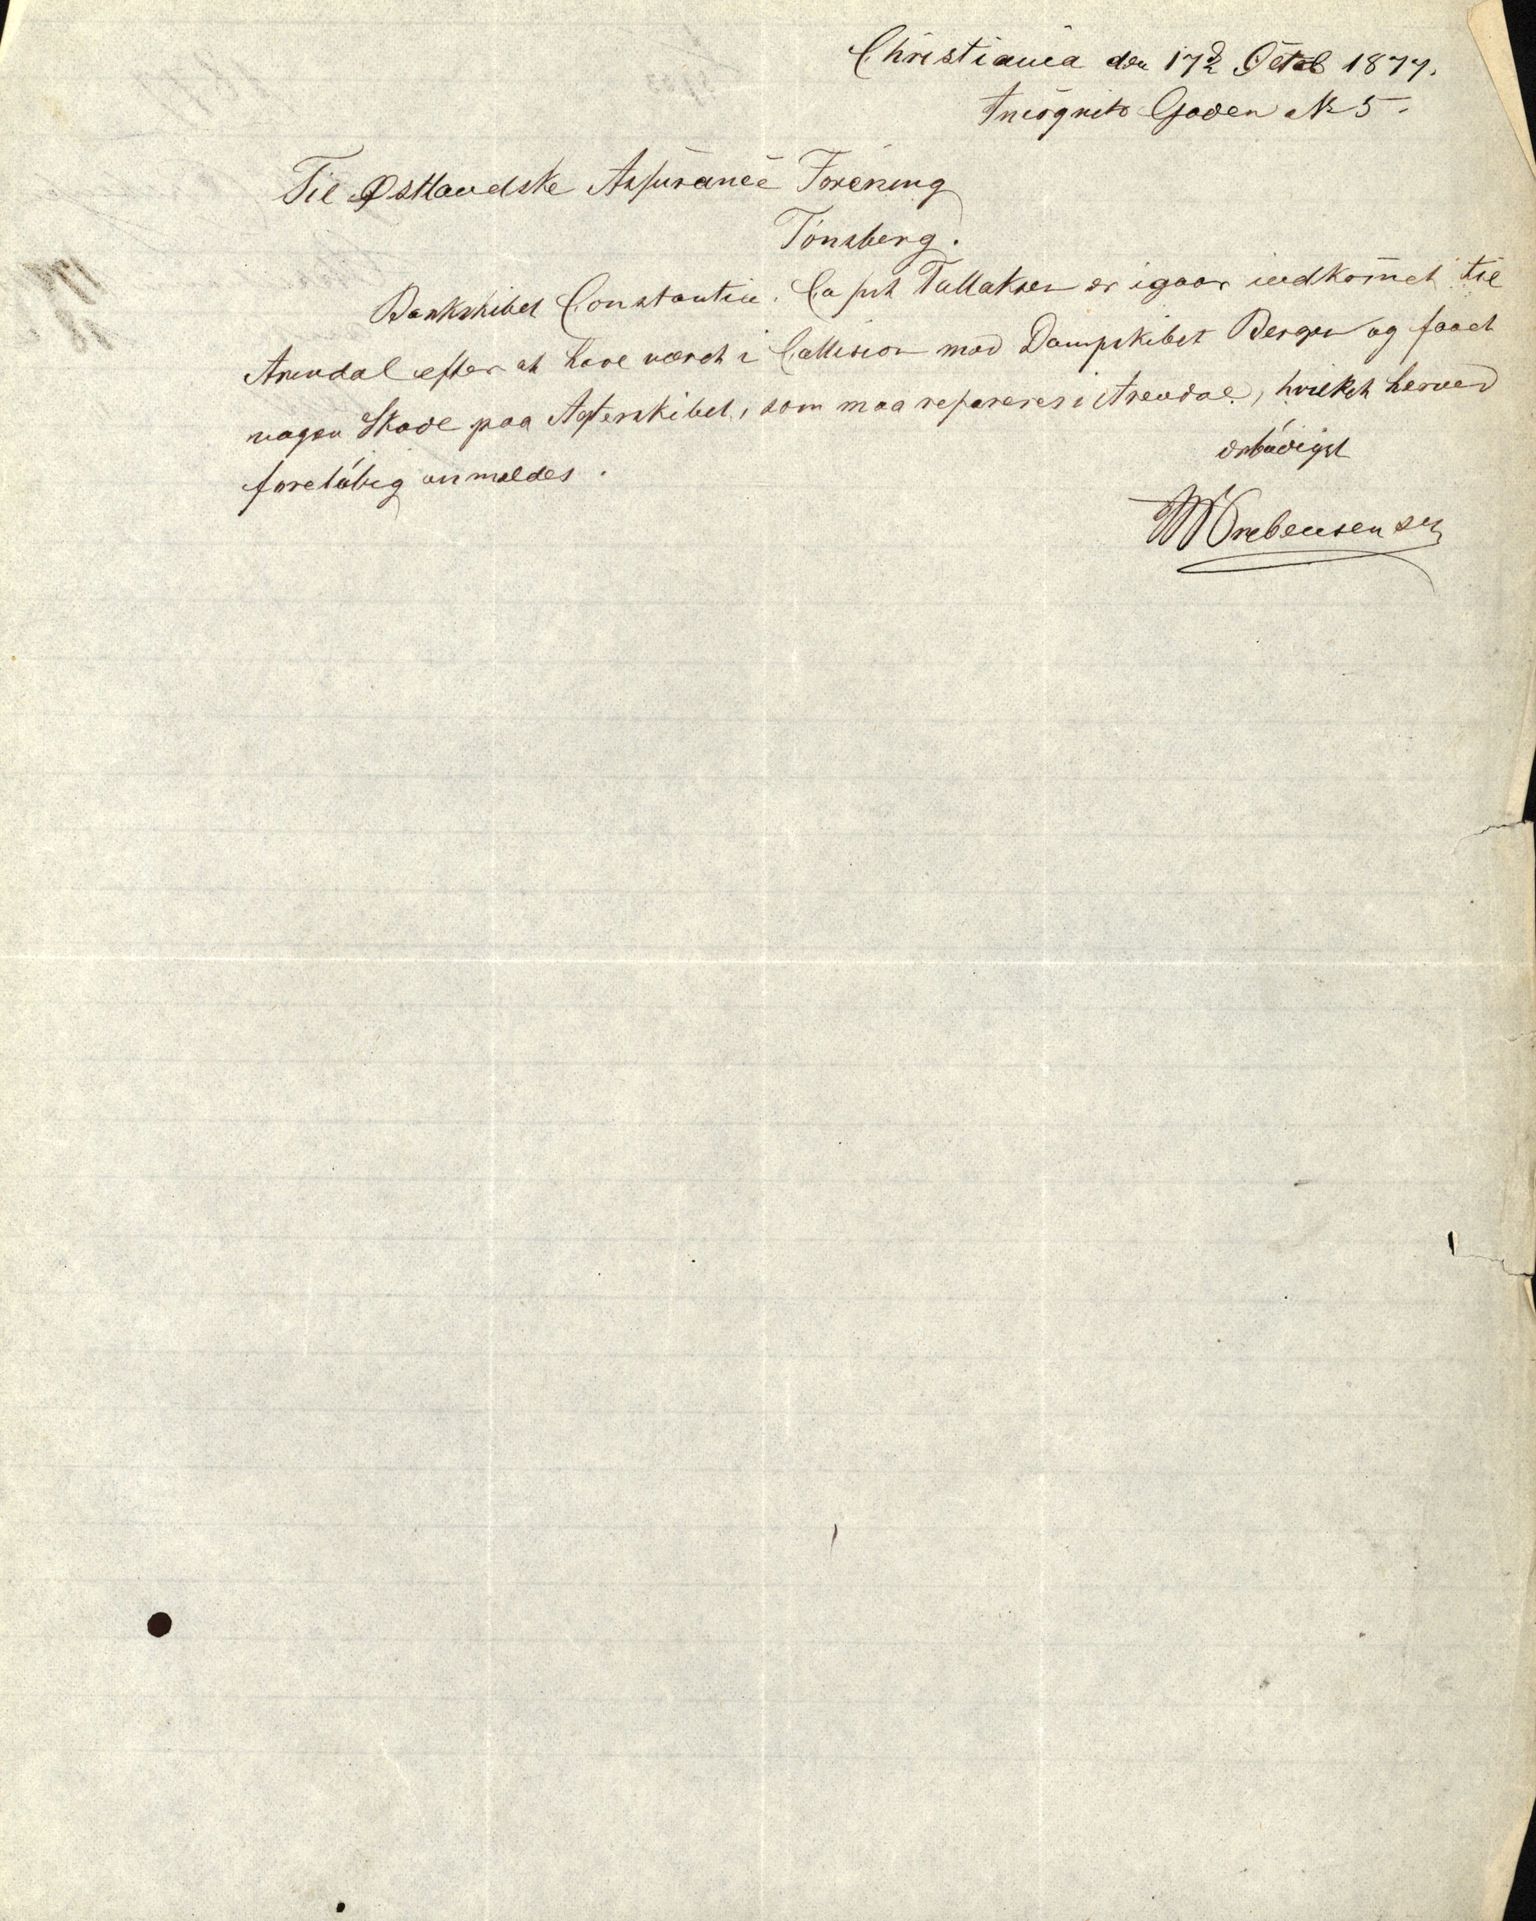 Christiania den 17de Octob 1877.
Incognito Gaden No 5.
Til Østlandske Assurance Forening
Tönsberg.
Barkskibet Constantin, Capt Tallaksen er igaar indkommet til
Arendal efter at have været i Collision med Dampskibet Bergen og faaet
nogen Skade paa Agterskibet, som maa repareres i Arendal, hvilket herved
foreløbig anmeldes.
ærbødigst
Ørebensen sen